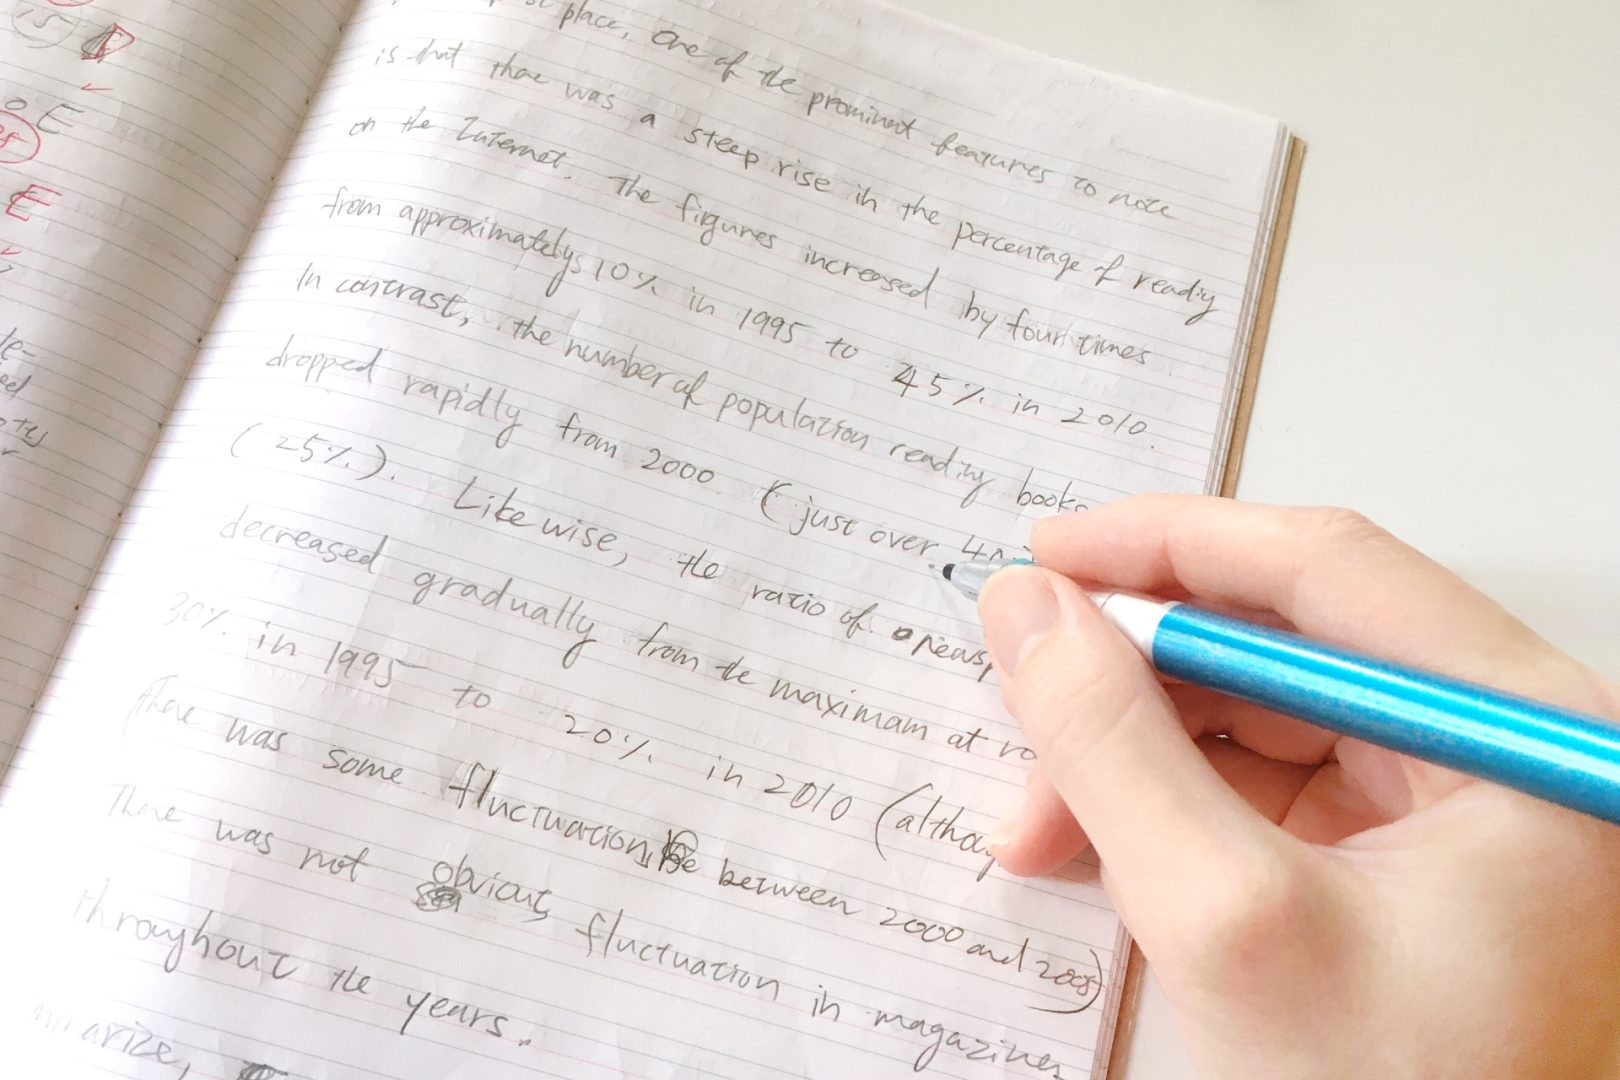 place, one of the prominent features to note
is that there was a steep rise in the percentage of reading
on the Internet. The figures increased by four times
from approximately 10% in 1995 to 45% in 2010.
In contrast, the number of population reading books
dropped rapidly from 2000 (just over 40
(25%). Likewise, the ratio of
decreased gradually from the maximam at
30% in 1995 to 20% in 2010 (
There was some fluctuation between 2000 and 2005)
There was not obvious fluctuation in magazines
throughout the years.